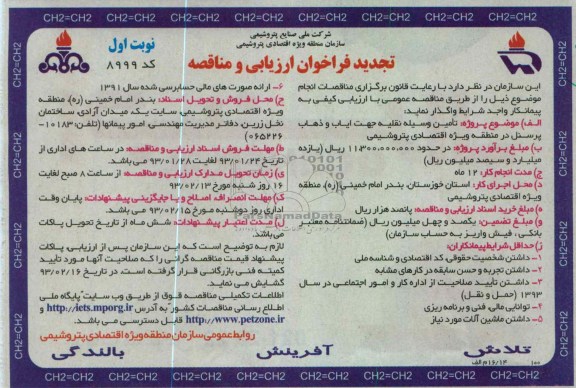 CH2=CH2 CH2=CH2 CH2=CH2 CH2=CH2 CH2=CH2 CH2=CH2 CH2=CH2
شرکت ملی صنایع پتروشیمی
سازمان منطقه ویژه اقتصادی پتروشیمی
نوبت اول
کد ۸۹۹۹
تجدید فراخوان ارزیابی و مناقصه
این سازمان در نظر دارد با رعایت قانون برگزاری مناقصات انجام
موضوع ذیل را از طریق مناقصه عمومی با ارزیابی کیفی به
پیمانکار واجد شرایط واگذار نماید:
الف) موضوع پروژه: تأمین وسیله نقلیه جهت ایاب و ذهاب
پرسنل در منطقه ویژه اقتصادی پتروشیمی
ب) مبلغ برآورد پروژه: در حدود ۱۱,۳۰۰,۰۰۰,۰۰۰ ریال (یازده
میلیارد و سیصد میلیون ریال)
ج) مدت انجام کار: ۱۲ ماه
د) محل اجرای کار: استان خوزستان، بندر امام خمینی (ره) منطقه
ه) مبلغ خرید اسناد ارزیابی و مناقصه: پانصد هزار ریال
و) مبلغ تضمین: یکصد و چهل میلیون ریال (ضمانتنامه معتبر
بانکی ، فیش واریز به حساب سازمان)
ز) حداقل شرایط پیمانکاران:
۱- داشتن شخصیت حقوقی، کد اقتصادی و شناسه ملی
۲- داشتن تجربه و حسن سابقه در کارهای مشابه
۳- داشتن تأیید صلاحیت از اداره کار و امور اجتماعی در سال
۱۳۹۳ (حمل و نقل)
۴- توانایی مالی، فنی و برنامه ریزی
۵- داشتن ماشین آلات مورد نیاز
۶- ارائه صورت های مالی حسابرسی شده سال ۱۳۹۱
ح) محل فروش و تحویل اسناد: بندر امام خمینی (ره)، منطقه
ویژه اقتصادی پتروشیمی، سایت یک، میدان آزادی، ساختمان
نخل زرین، دفاتر مدیریت مهندسی، امور پیمانها (تلفن: ۱۰۱۸۳-
۰۶۵۲۲۶)
ط) مهلت فروش اسناد ارزیابی و مناقصه: در ساعت های اداری از
تاریخ ۹۳/۰۱/۲۴ لغایت ۹۳/۰۱/۲۸ می باشد.
ی) زمان تحویل مدارک ارزیابی و مناقصه: از ساعت ۸ صبح لغایت
۱۶ روز شنبه مورخ ۹۳/۰۲/۱۳
ک) مهلت انصراف، اصلاح و یا جایگزینی پیشنهادات: پایان وقت
اداری روز دوشنبه مورخ ۹۳/۰۲/۱۵ می باشد.
ل) مدت اعتبار پیشنهادات: شش ماه از تاریخ تحویل پاکات
می باشد.
لازم به توضیح است که این سازمان پس از ارزیابی، پاکات
پیشنهاد قیمت مناقصه گرانی را که صلاحیت آنها مورد تأیید
کمیته فنی بازرگانی قرار گرفته است، در تاریخ ۹۳/۰۲/۱۶
گشایش می نماید.
اطلاعات تکمیلی مناقصه فوق از طریق وب سایت "پایگاه ملی
اطلاع رسانی مناقصات کشور" به آدرس http://iets.mporg.ir و
http://www.petzone.ir قابل دسترسی می باشد.
روابط عمومی سازمان منطقه ویژه اقتصادی پتروشیمی
تلاش آفرینش بالندگی
۱۶/۱۴ م الف ۱۰۰
CH2=CH2 CH2=CH2 CH2=CH2 CH2=CH2 CH2=CH2 CH2=CH2 CH2=CH2